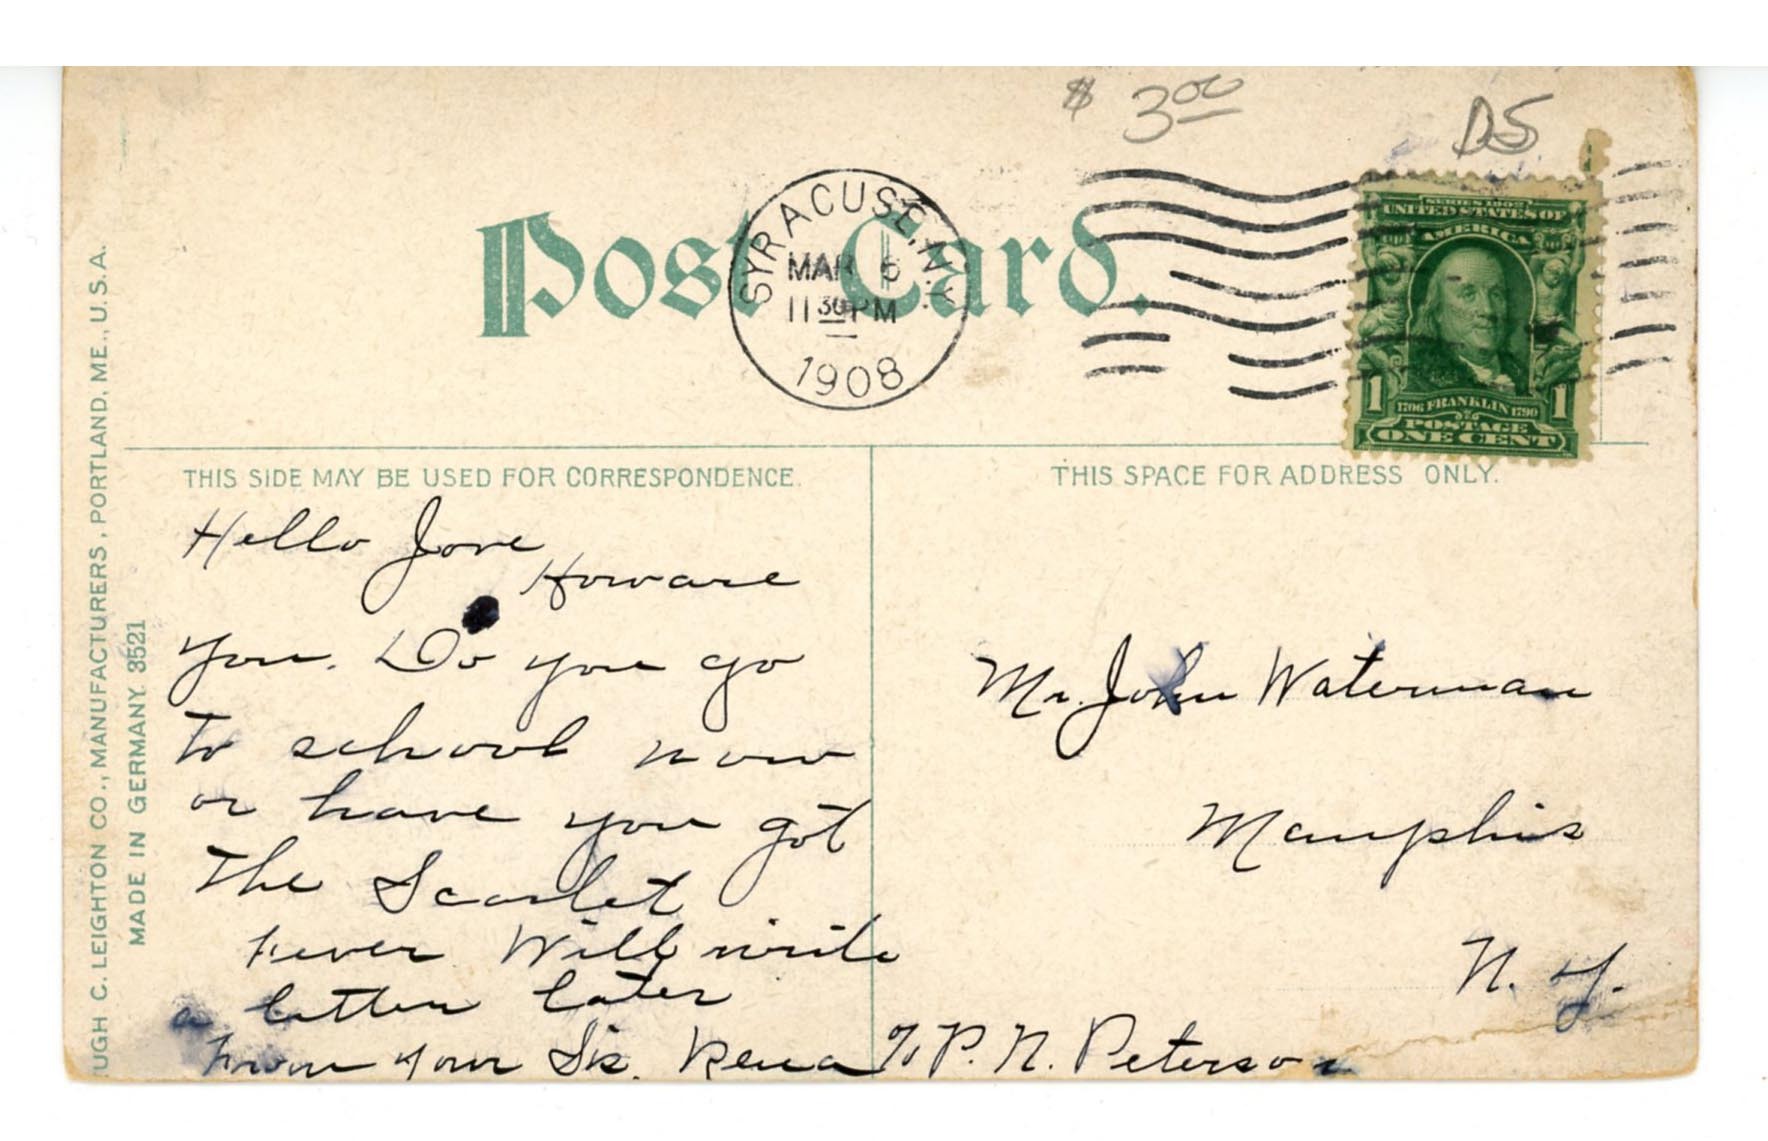 $ 3.00
DS
Post Card.
SYRACUSE, N.Y.
MAR 5
11 30 PM
1908
SERIES 1902
UNITED STATES OF
AMERICA
1 1706 FRANKLIN 1790 1
POSTAGE
ONE CENT
THIS SIDE MAY BE USED FOR CORRESPONDENCE.
THIS SPACE FOR ADDRESS ONLY.
UGH C. LEIGHTON CO., MANUFACTURERS, PORTLAND, ME., U.S.A.
MADE IN GERMANY. 3521
Hello Jone
Howare
you. Do you go
to school now
or have you got
the Scarlet
Fever Will write
a letter later
From your Sis. Rena % P. N. Peterson
Mr. John Waterman
Memphis
N. Y.